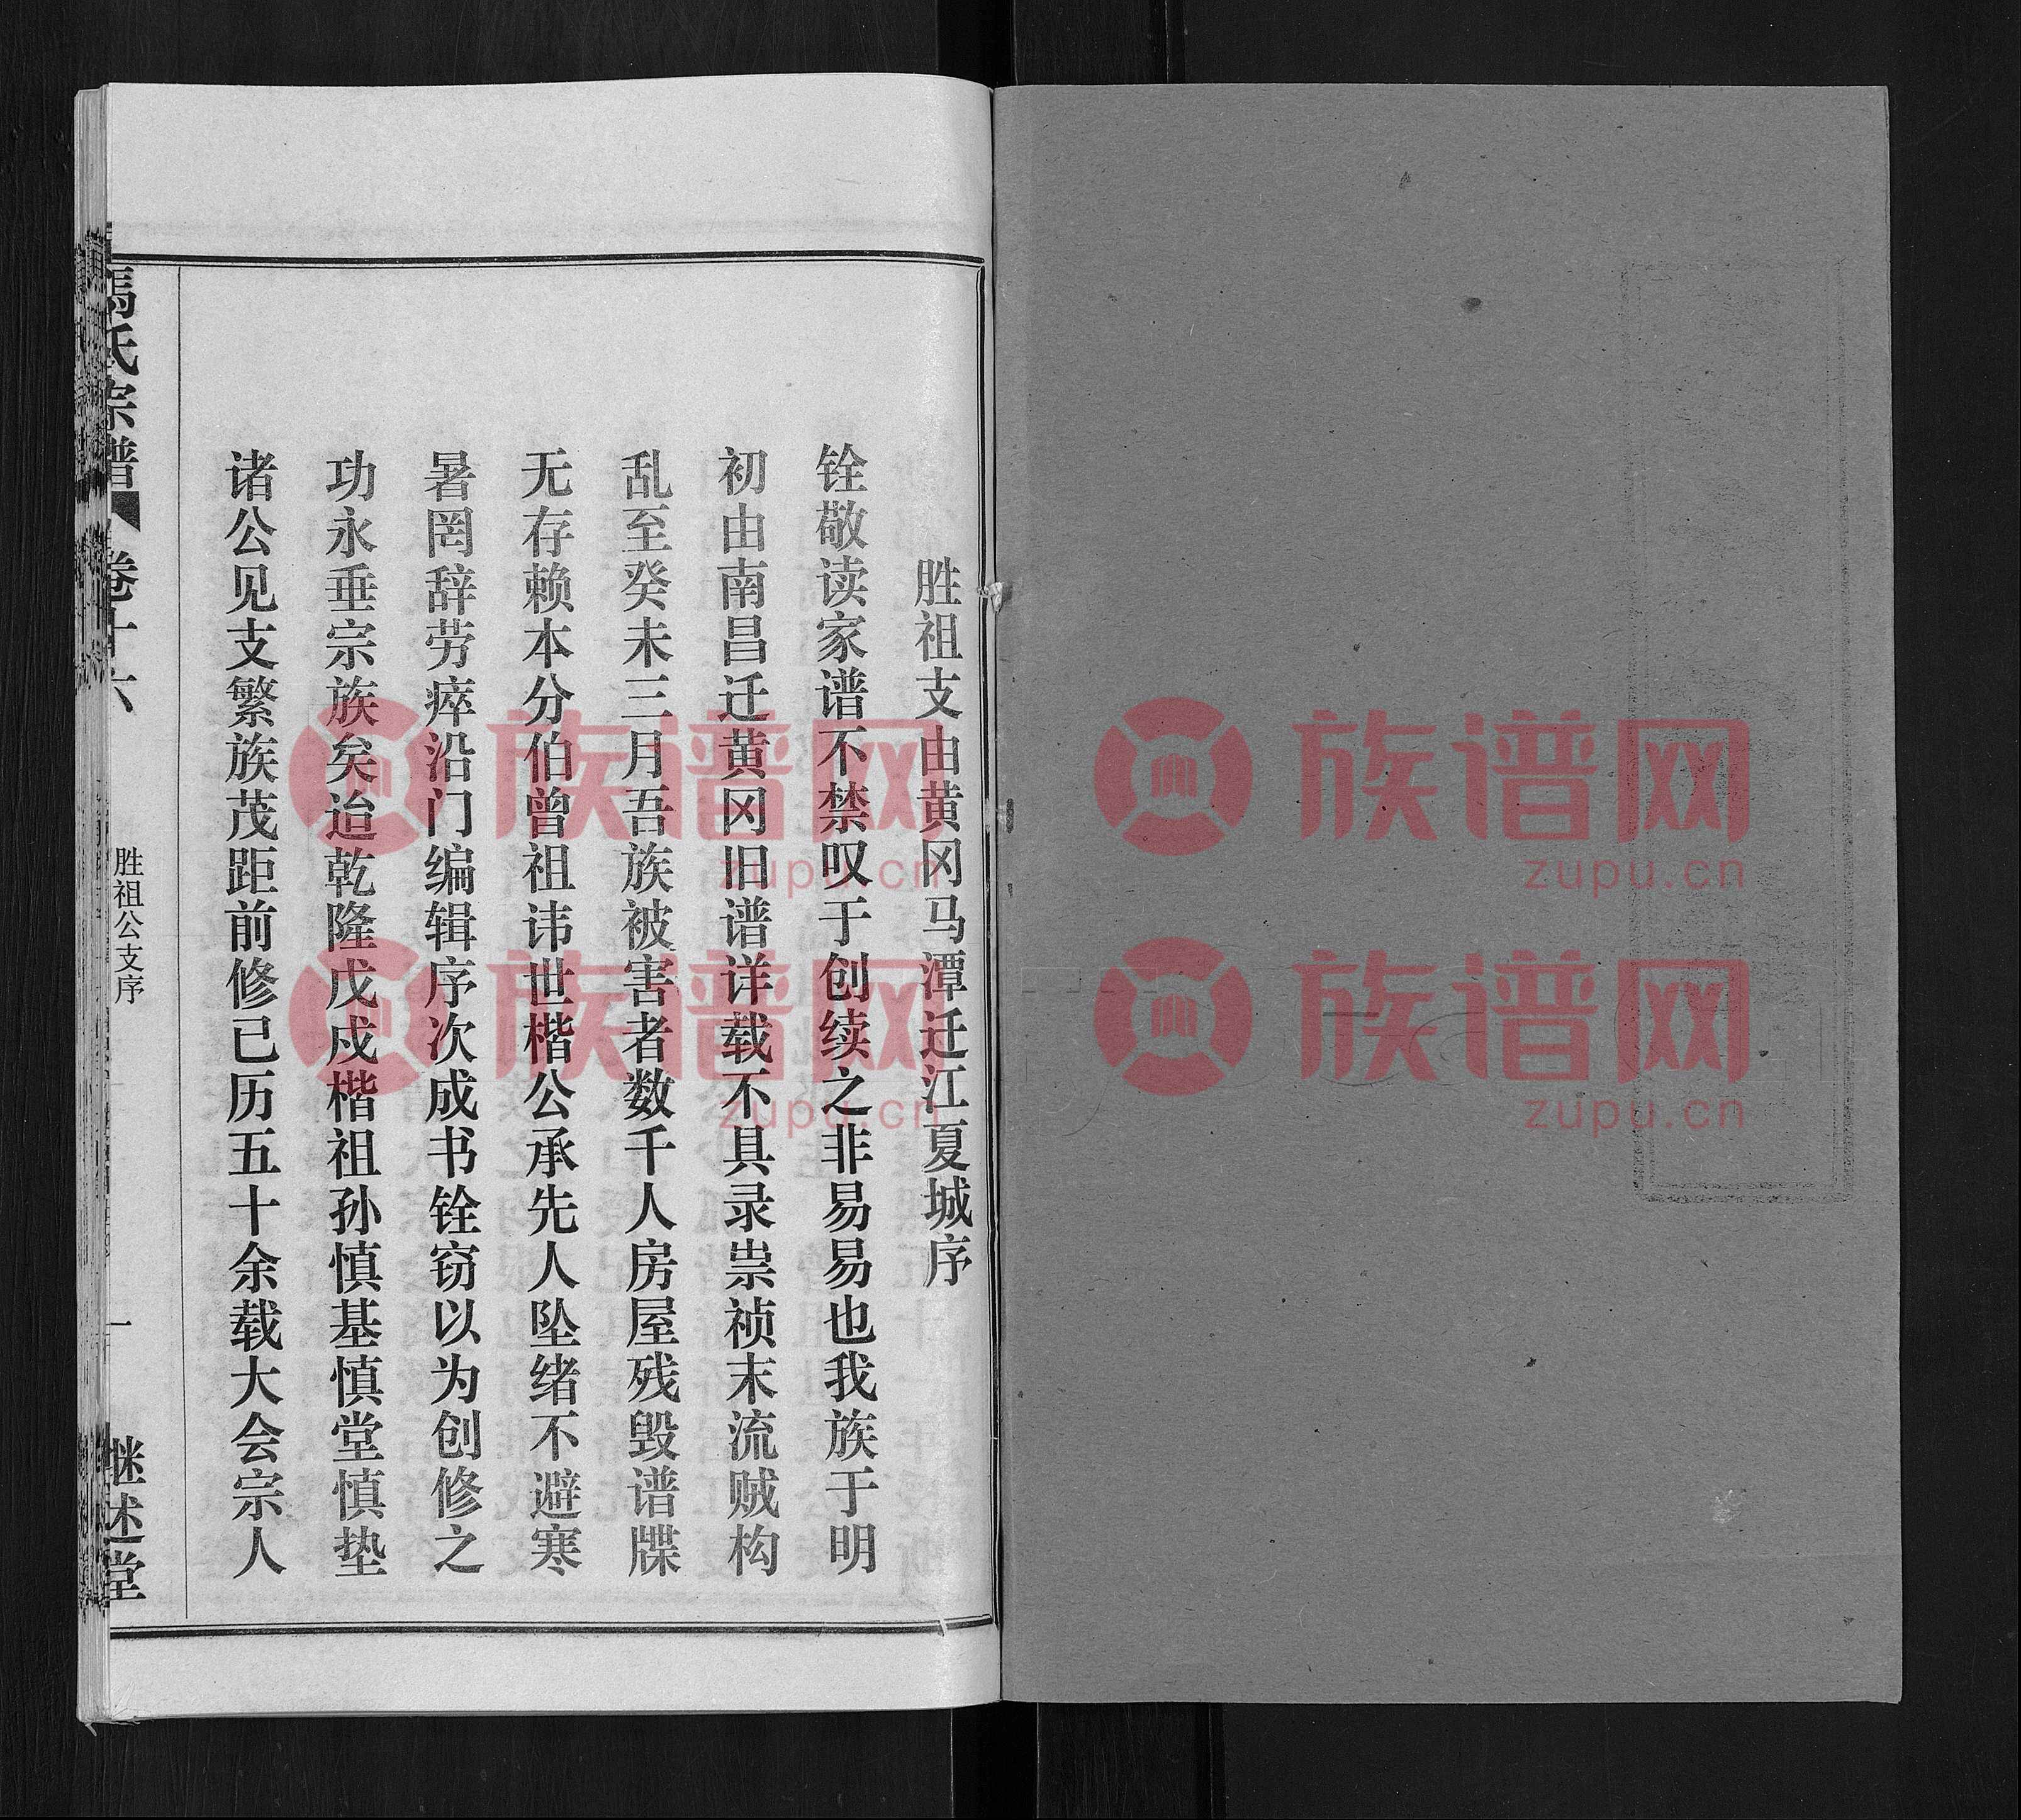 胜祖支由黄冈马潭迁江夏城序
铨敬读家谱不禁叹于创续之非易易也我族于明
初由南昌迁黄冈旧谱详载不具录祟祯末流贼构
乱至癸未三月吾族被害者数千人房屋残毁谱牒
无存赖本分伯曾祖讳世楷公承先人坠绪不避寒
暑罔辞劳瘁沿门编辑序次成书铨窃以为创修之
功永垂宗族矣迨乾隆戊戍楷祖孙慎基慎堂慎垫
诸公见支繁族茂距前修已历五十余载大会宗人
馮氏宗譜 卷十六
胜祖公支序
一
继述堂
族谱网
zupu.cn
族谱网
zupu.cn
族谱网
zupu.cn
族谱网
zupu.cn